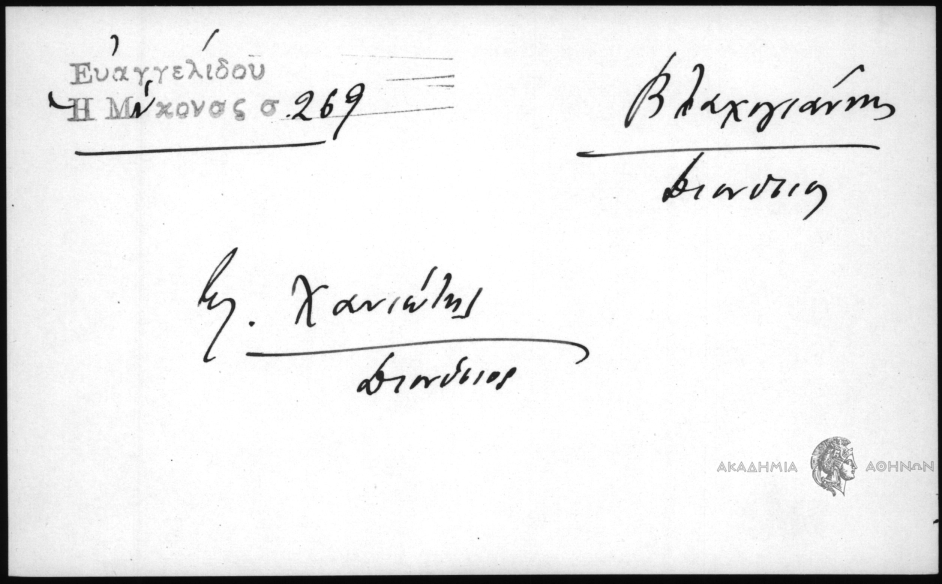 Εὐαγγελίδου
Ἡ Μύκονος σ. 269
Βλαχογιάννης
Διονύσιος
βλ. Χανιώτης
Διονύσιος
ΑΚΑΔΗΜΙΑ ΑΘΗΝΩΝ